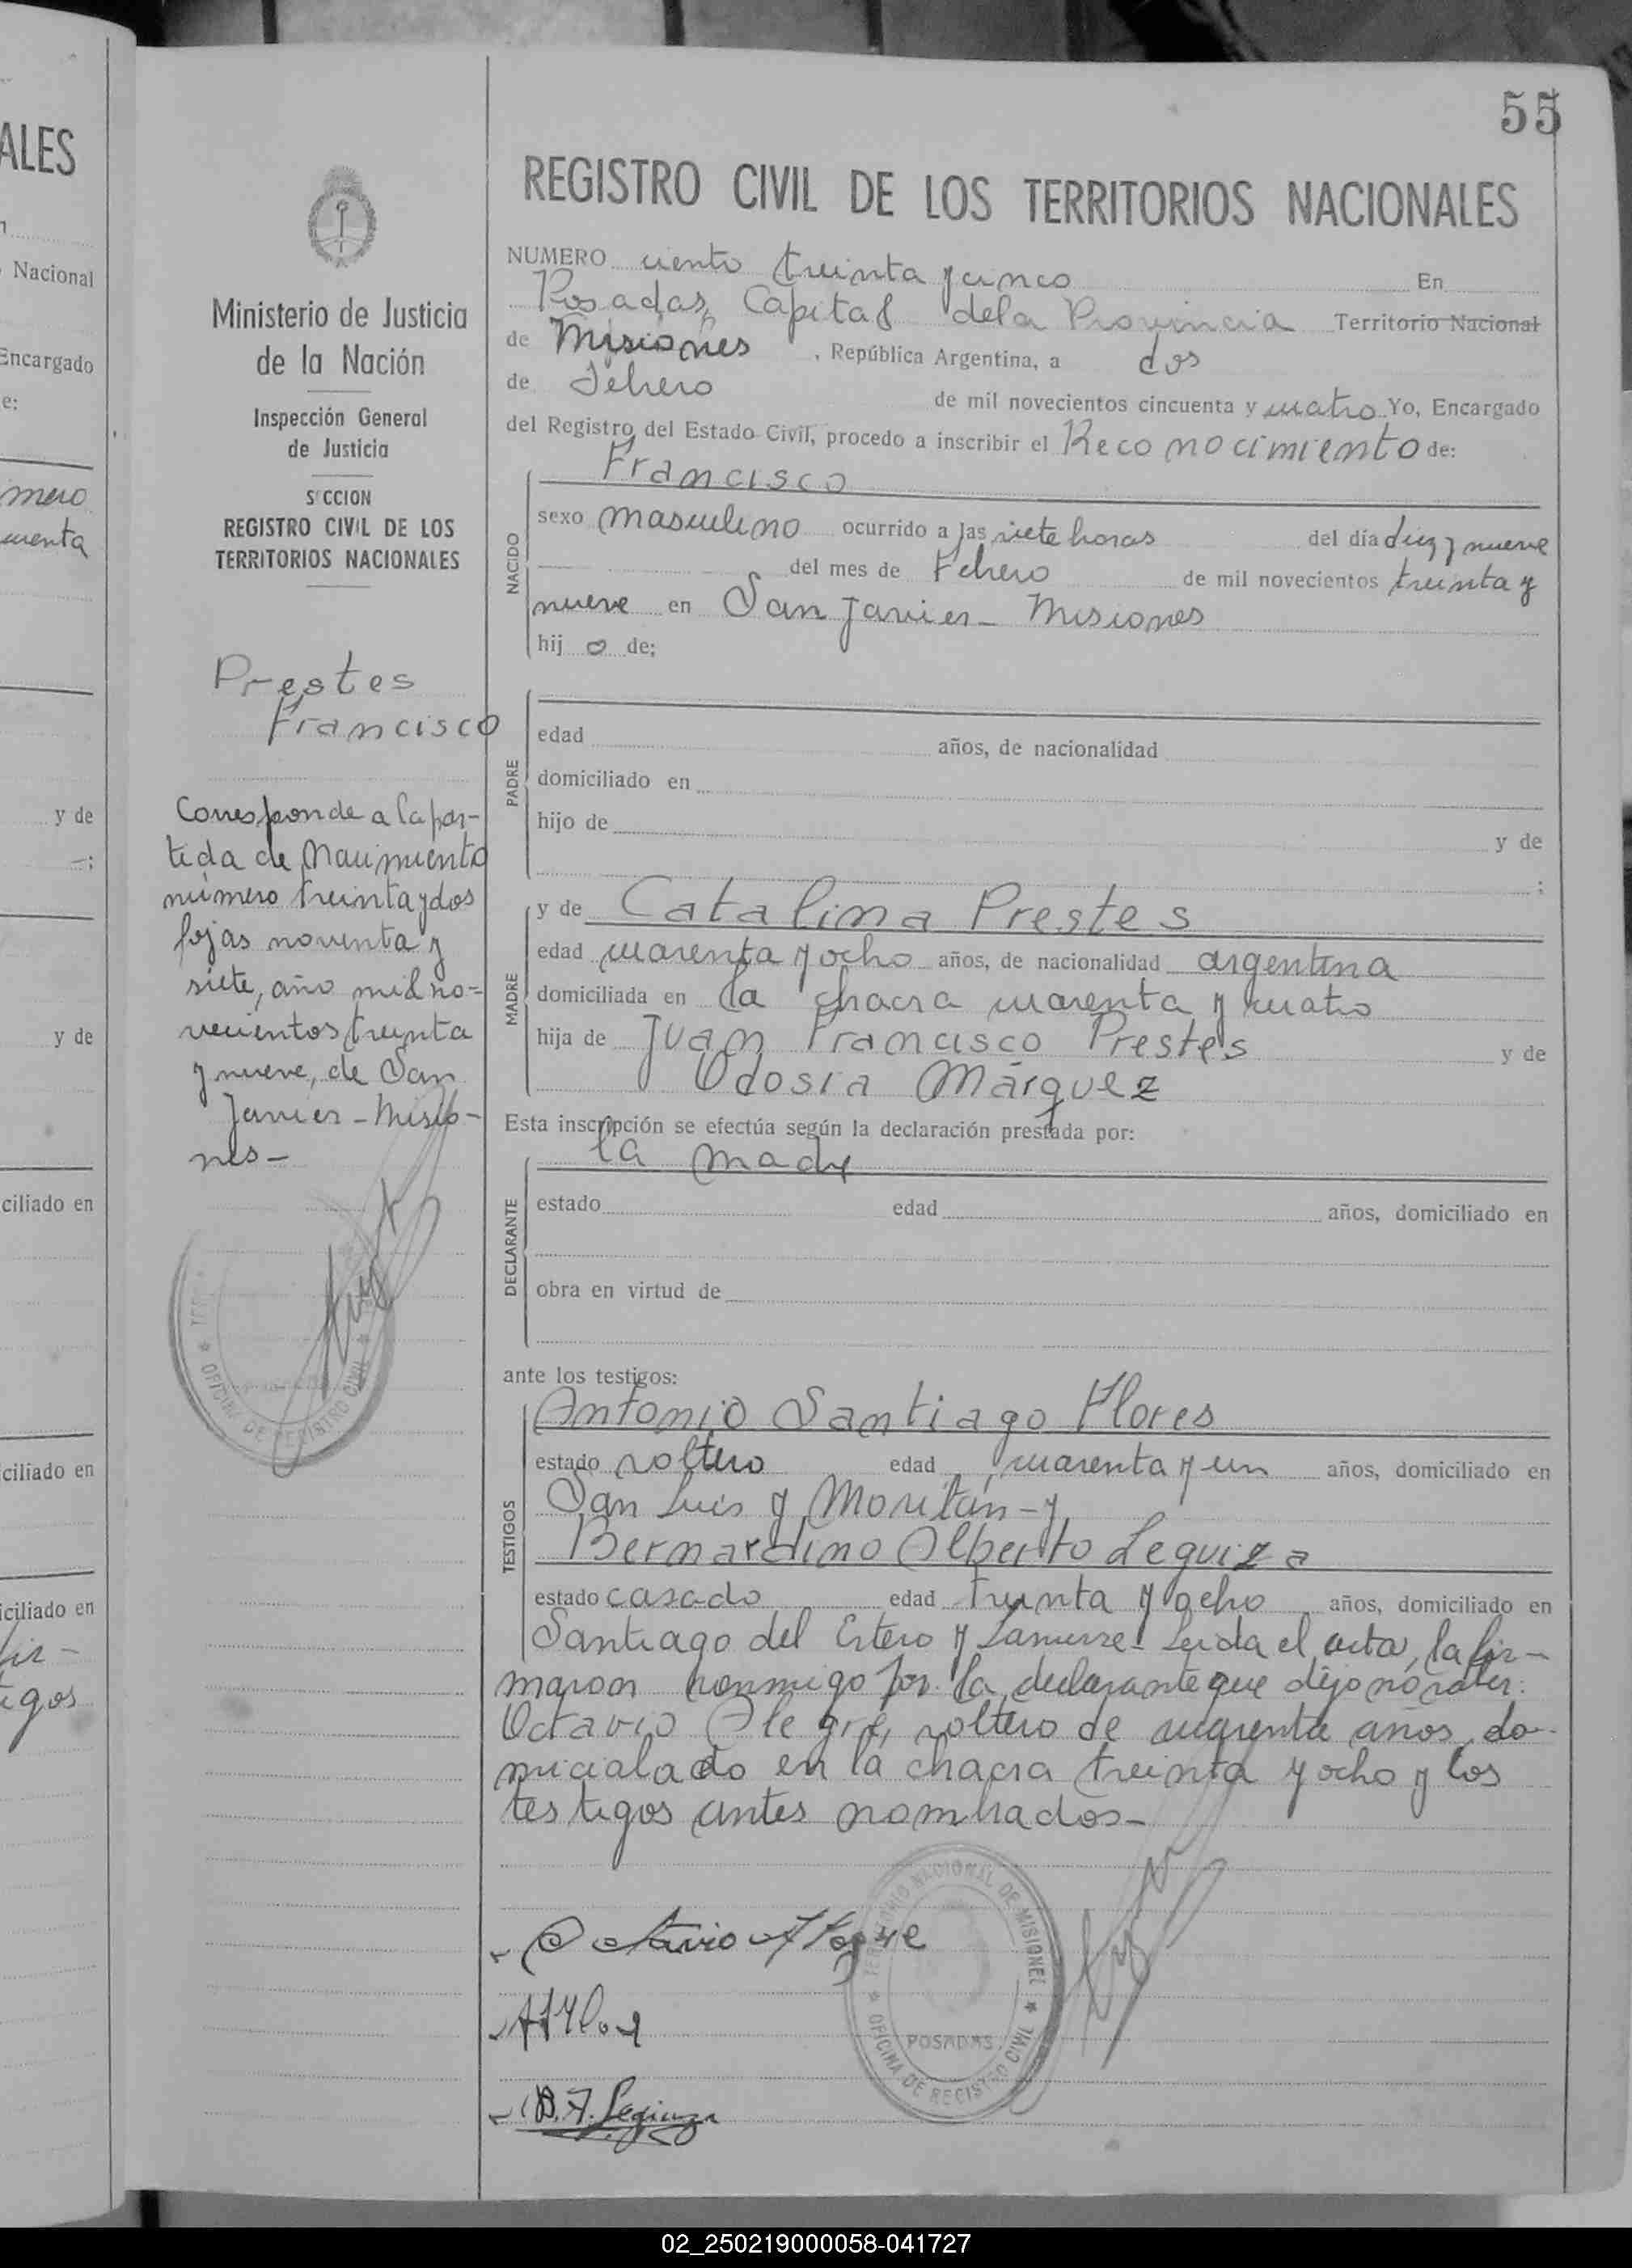 ALES
Nacional
Encargado
e:
mero
y de
y de
ciliado en
ciliado en
iciliado en
Ministerio de Justicia
de la Nación
Inspección General
de Justicia
S CCION
REGISTRO CIVIL DE LOS
TERRITORIOS NACIONALES
Prestes
Francisco
Corresponde a la par-
tida de Nacimiento
número treinta y dos
fojas noventa y
siete, año mil no-
vecientos treinta
y nueve, de San
Javier - Misio-
nes -
OFICINA DE REGISTRO CIVIL
55
REGISTRO CIVIL DE LOS TERRITORIOS NACIONALES
NUMERO ciento treinta y cinco En
Posadas, Capital de la Provincia Territorio Nacional
de Misiones, República Argentina, a dos
de Febrero de mil novecientos cincuenta y cuatro Yo, Encargado
del Registro del Estado Civil, procedo a inscribir el Reconocimiento de:
Francisco
NACIDO
sexo masculino ocurrido a las siete horas del día diez y nueve
del mes de Febrero de mil novecientos treinta y
nueve en San Javier - Misiones
hij o de;
PADRE
edad años, de nacionalidad
domiciliado en
hijo de y de
;
MADRE
y de Catalina Prestes
edad cuarenta y ocho años, de nacionalidad argentina
domiciliada en la chacra cuarenta y cuatro
hija de Juan Francisco Prestes y de
Odosia Márquez
Esta inscripción se efectúa según la declaración prestada por:
la madre
DECLARANTE
estado edad años, domiciliado en
obra en virtud de
ante los testigos:
TESTIGOS
Antonio Santiago Flores
estado soltero edad cuarenta y un años, domiciliado en
San Luis y Moritán - y
Bernardino Alberto Leguiza
estado casado edad treinta y ocho años, domiciliado en
Santiago del Estero y Leida el acta, la fir-
maron conmigo por la declarante que dijo no saber:
Octavio Alegre, soltero de cuarenta años, do-
micialado en la chacra treinta y ocho y los
testigos antes nombrados -
Octavio Alegre
B. A. Leguiza
TERRITORIO NACIONAL DE MISIONES
POSADAS
OFICINA DE REGISTRO CIVIL
02_250219000058-041727